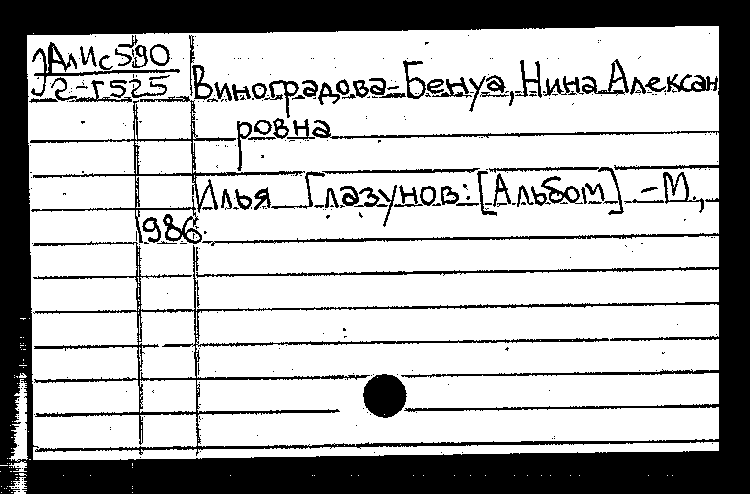 ЗАлИс590
2-Г525
Виноградова-Бенуа, Нина Алексан
ровна
Илья Глазунов: [Альбом] - М.,
1986